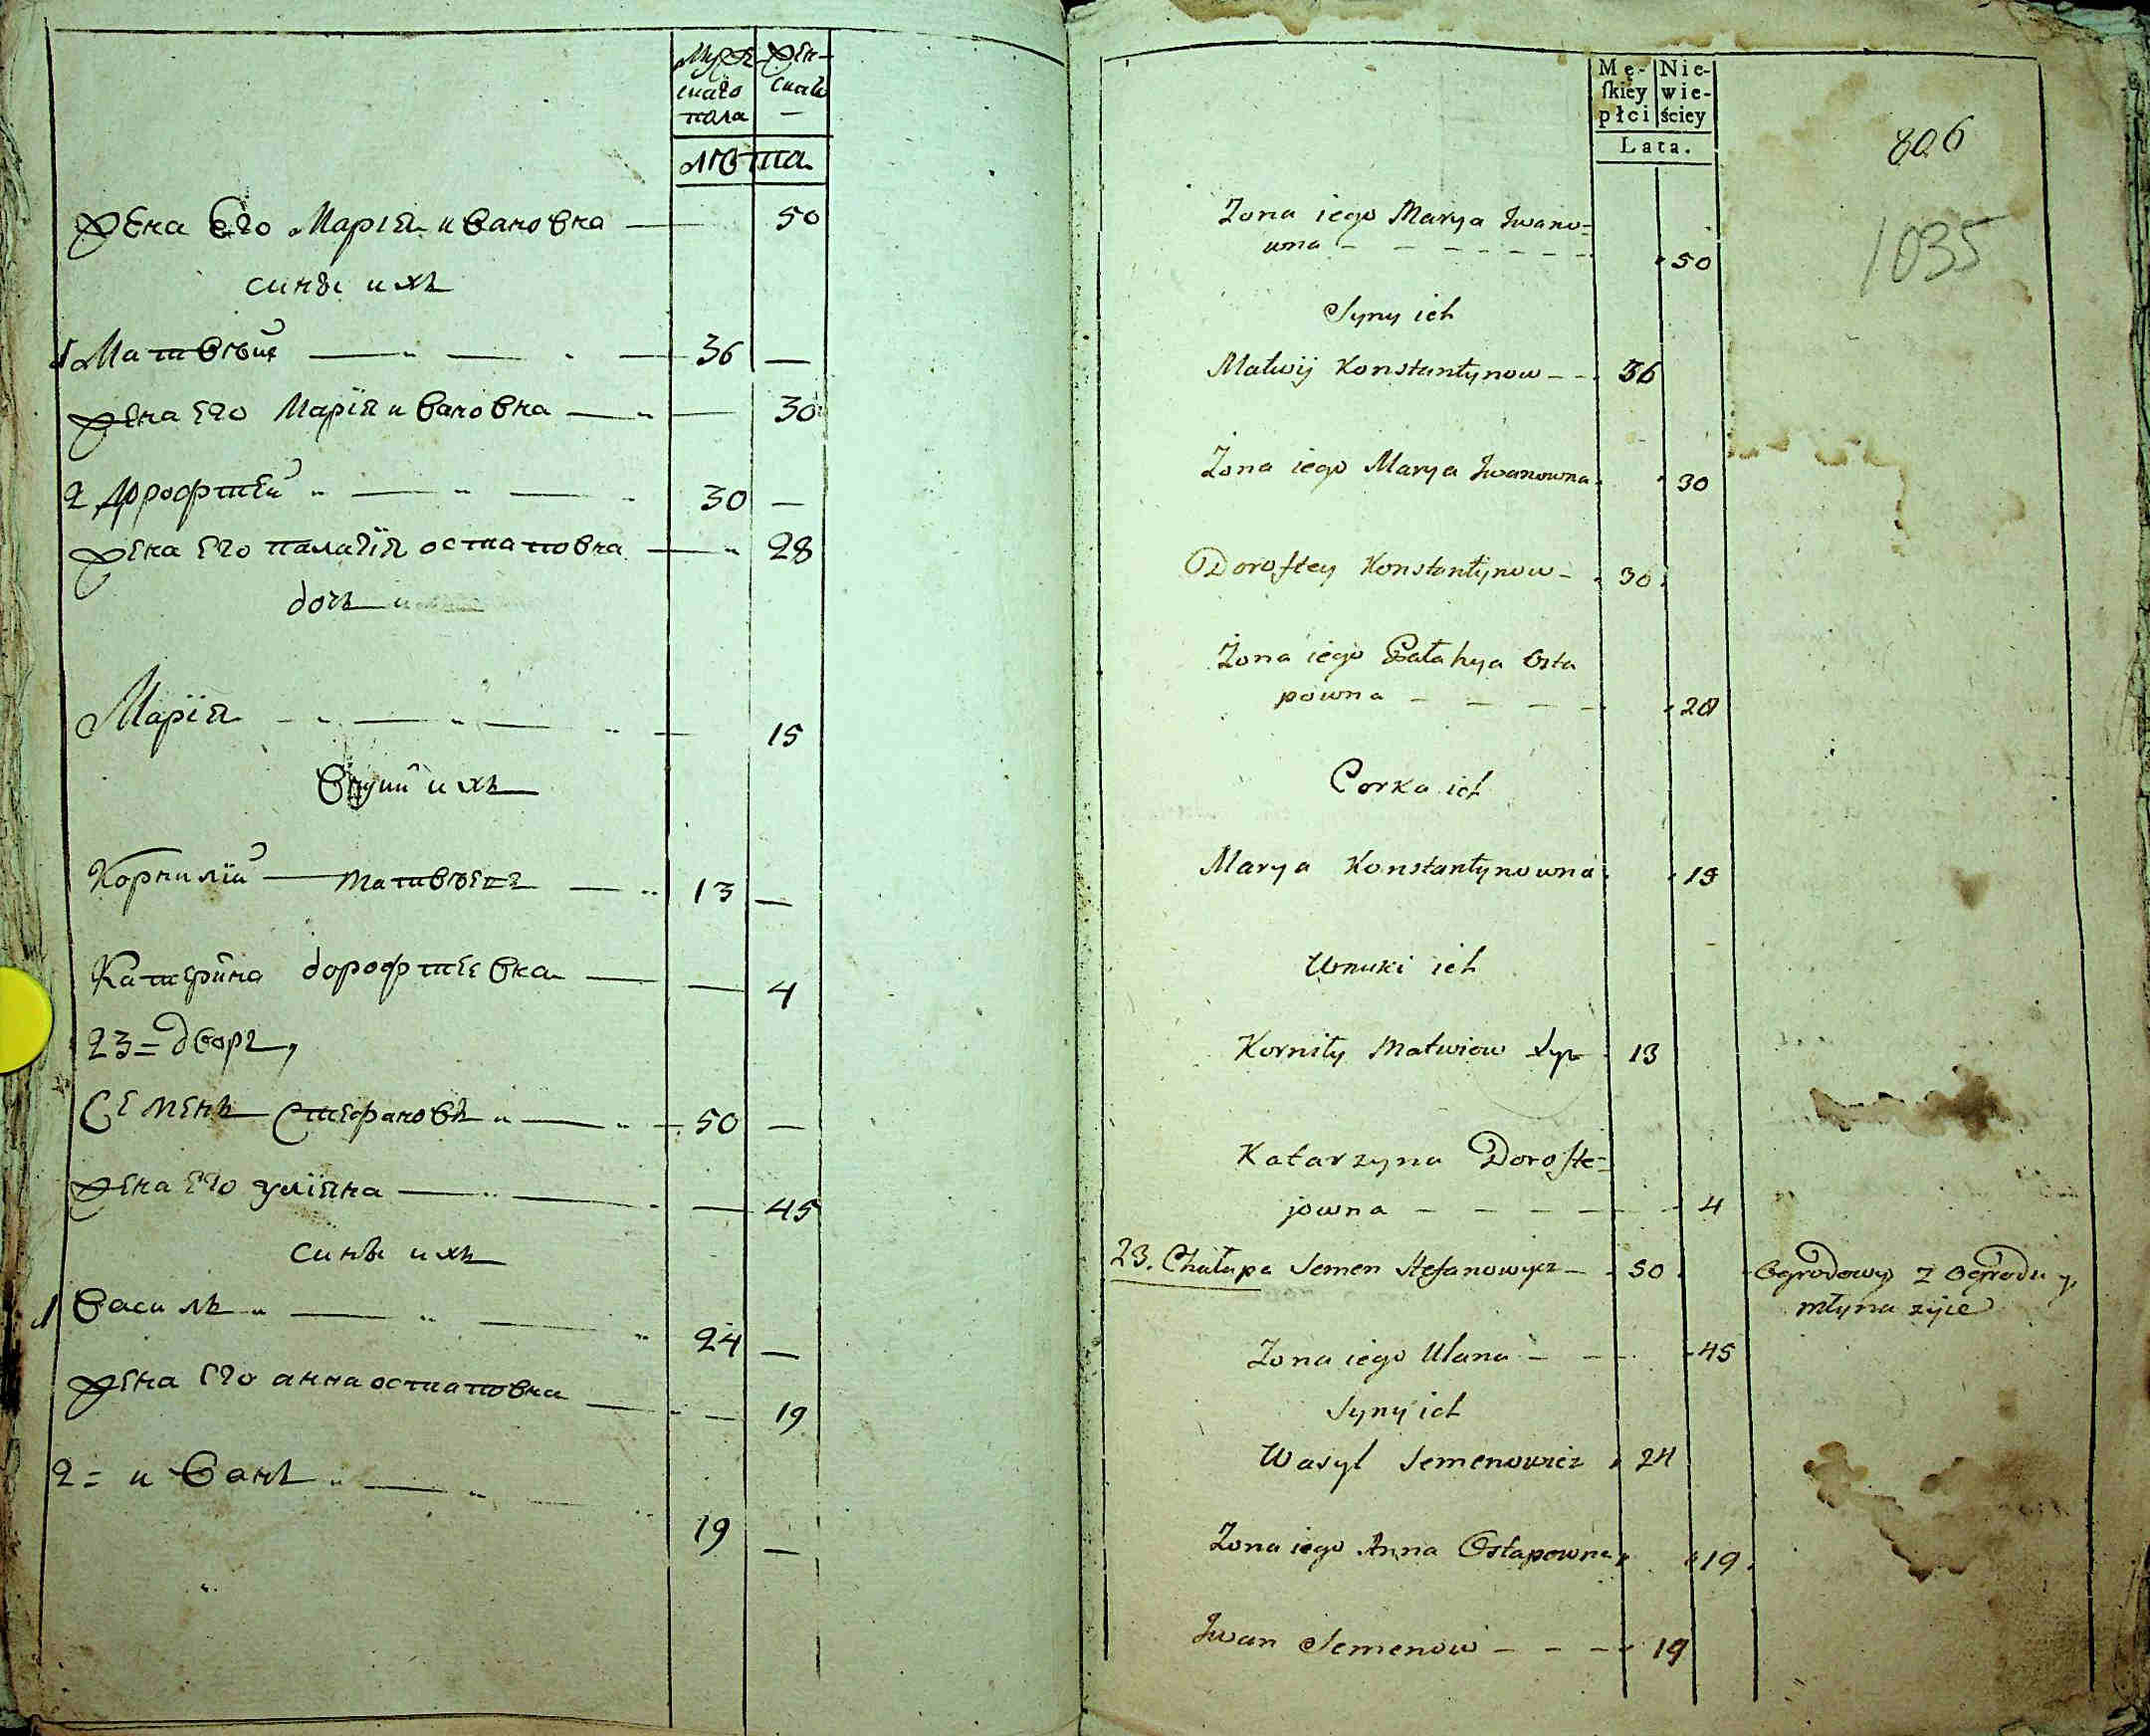 Муже- Жен-
скаго скаго
пола —
лѣта
Жена Его Марія ивановна — 50
сини ихъ
1 Матвѣй — 36 —
жена Его Марія ивановна — 30
2 Дорофтей — 30 —
жена Его палагія остаповна — 28
дочь
Марія — 15
внуки ихъ
Корнилій Матвѣевъ — 13 —
Катерина дорофтеевна — 4
23 = дворъ,
Семенъ Стефановъ — 50 —
жена Его улїяна — 45
сини ихъ
1 василь — 24 —
жена Его анна остаповна — 19
2 = иванъ — 19 —
Mę- Nie-
ſkiey wie-
płci ściey
Lata.
806
1035
Zona iego Marya Iwano=
wna - - - - - - 50
Syny ich
Matwij Konstantynow - - 36
Zona iego Marya Iwanowna 30
Doroftey Konstantynow - 30
Zona iego Pałahya Osta
powna - - - - 28
Corka ich
Marya Konstantynowna 15
Wnuki ich
Korniły Matwiow syn 13
Katarzyna Dorofte=
jowna - - - - - - 4
23. Chałupa Semen Stefanowycz - 50 Ogrodowy z Ogrodu y
młyna zyie
Zona iego Ulana - - 45
Syny ich
Wasyl Semenowicz 24
Zona iego Anna Ostapowna 19
Iwan Semenow - - - 19